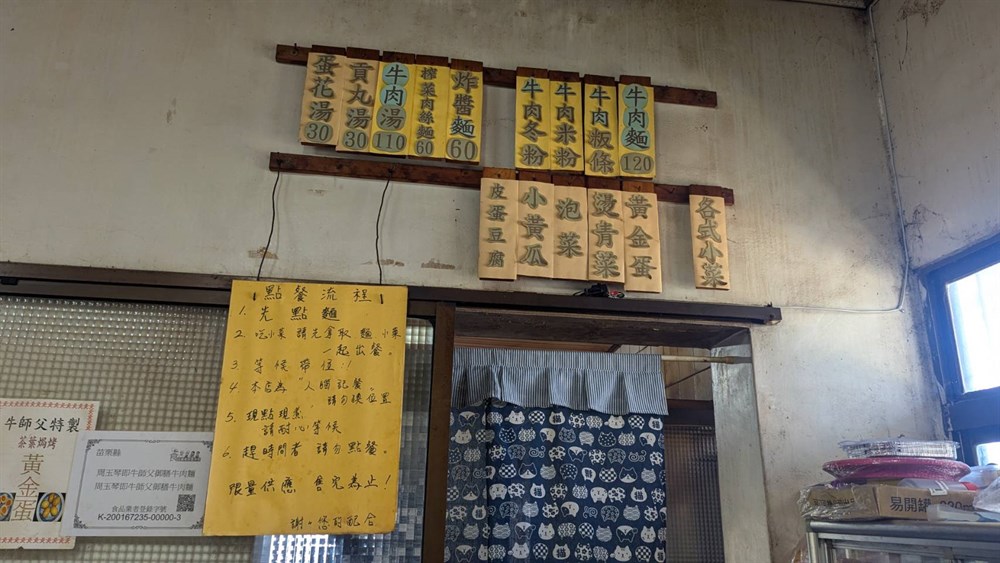 蛋花湯30
貢丸湯30
牛肉湯110
榨菜肉絲麵60
炸醬麵60
牛肉冬粉
牛肉米粉
牛肉粄條
牛肉麵120
皮蛋豆腐
小黃瓜
泡菜
燙青菜
黃金蛋
各式小菜
點餐流程
1. 先點麵
2. 吃小菜 請先拿取 麵小菜
一起出餐。
3. 等候帶位!
4. 本店為"人腦記餐。
請勿換位置
5. 現點現煮,
請耐心等候
6. 趕時間者 請勿點餐。
限量供應 售完為止!
謝。您的配合
牛師父特製
茶葉焗烤
黃金蛋
苗栗縣
周玉琴即牛師父御膳牛肉麵
周玉琴即牛師父御膳牛肉麵
食品業者登錄字號
K-200167235-00000-3
易開罐